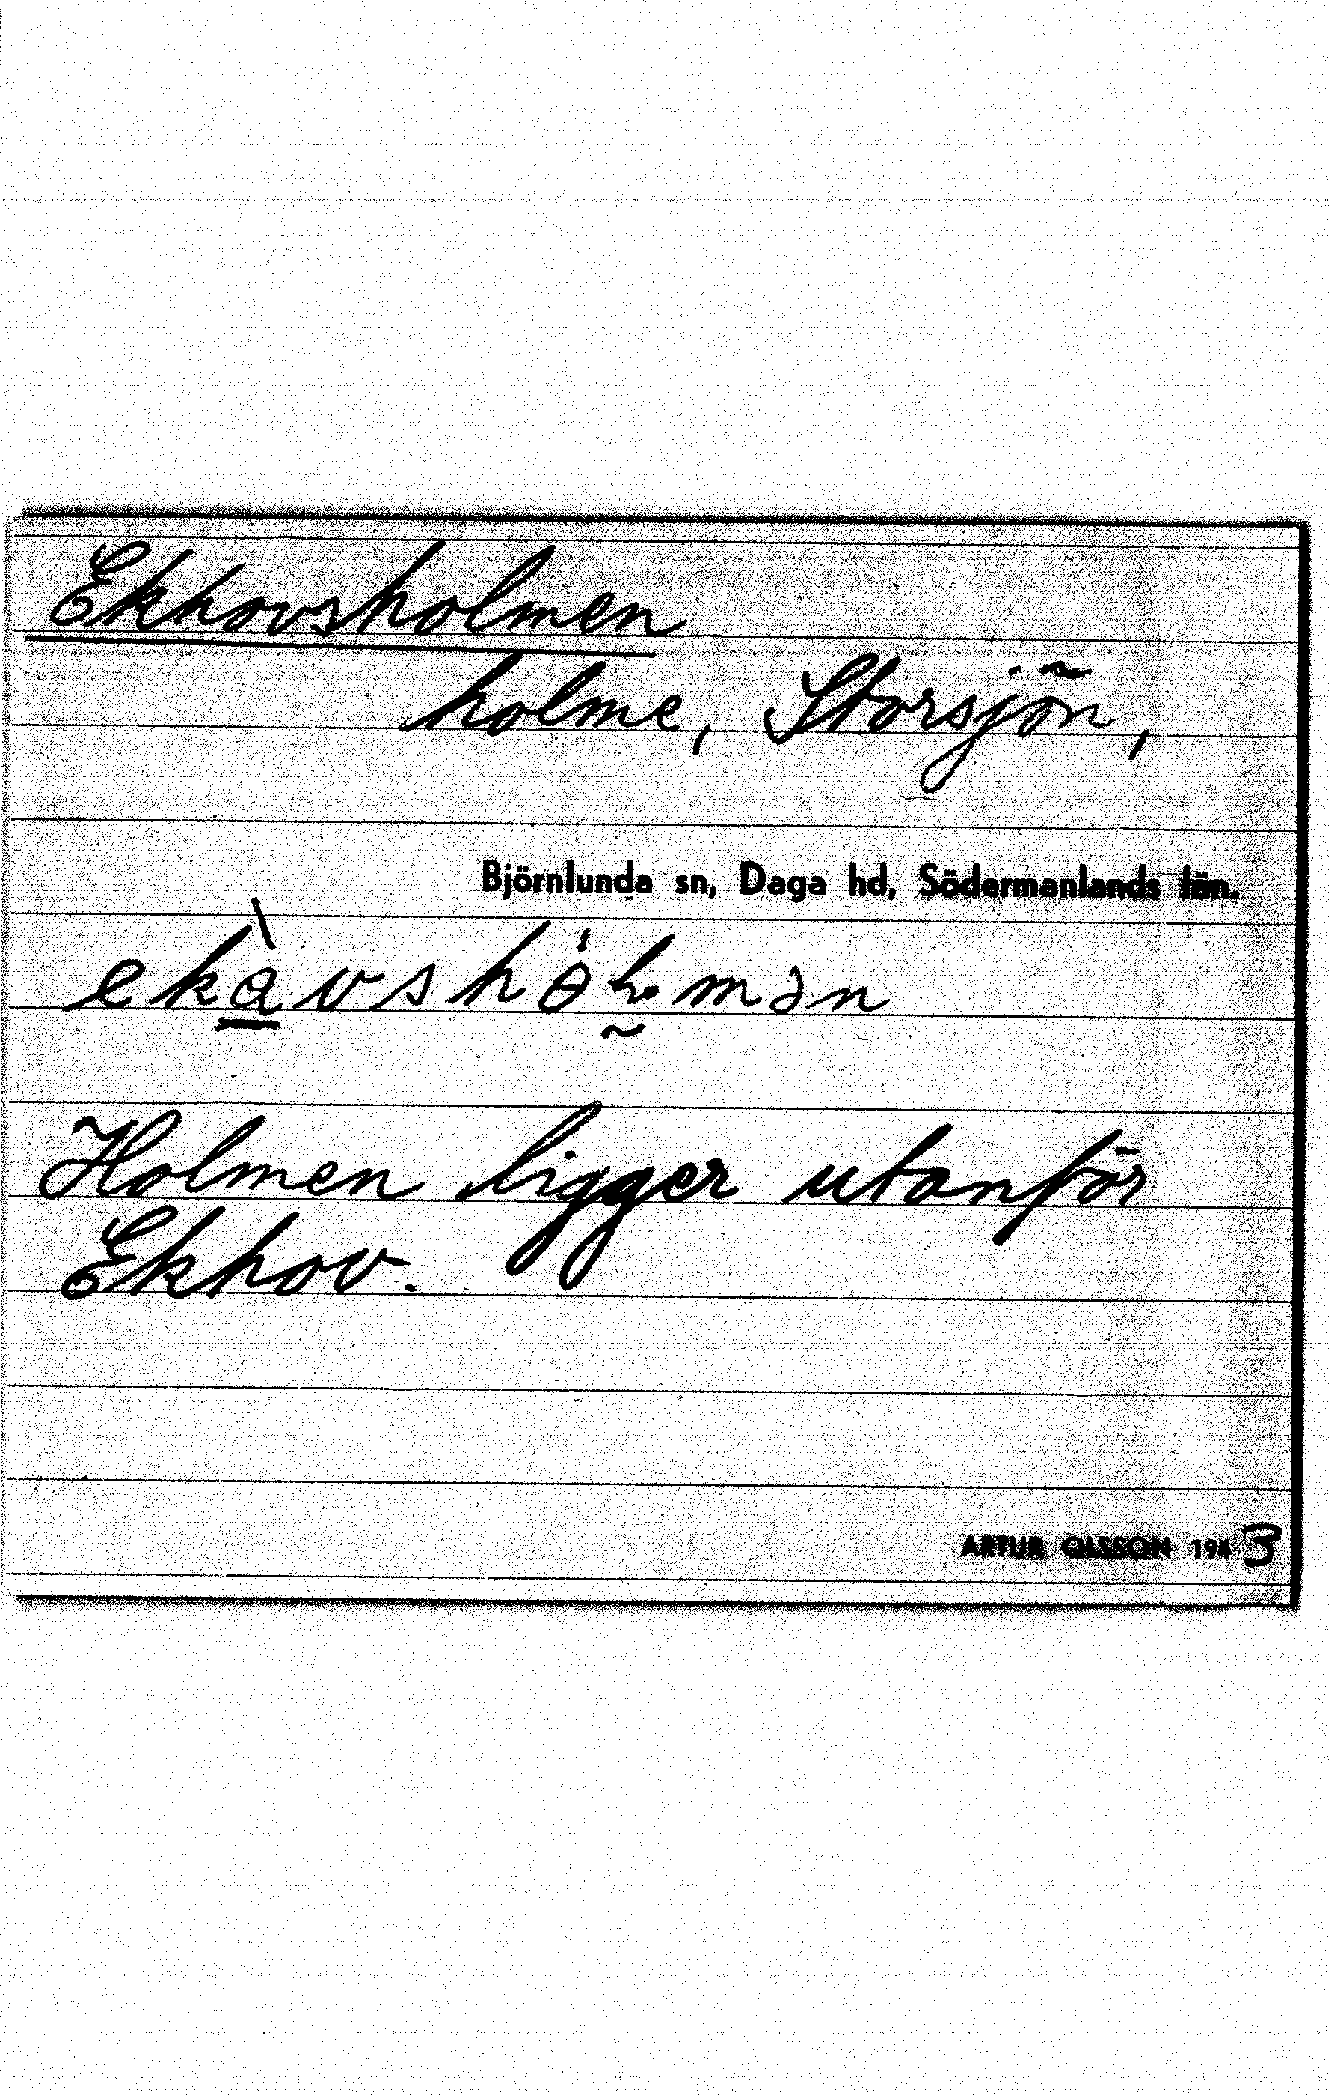 Ekhovsholmen
holme, Storsjön,
Björnlunda sn, Daga hd, Södermanlands län.
Holmen ligger utanför
Ekhov.
ARTUR OLSSON 1943